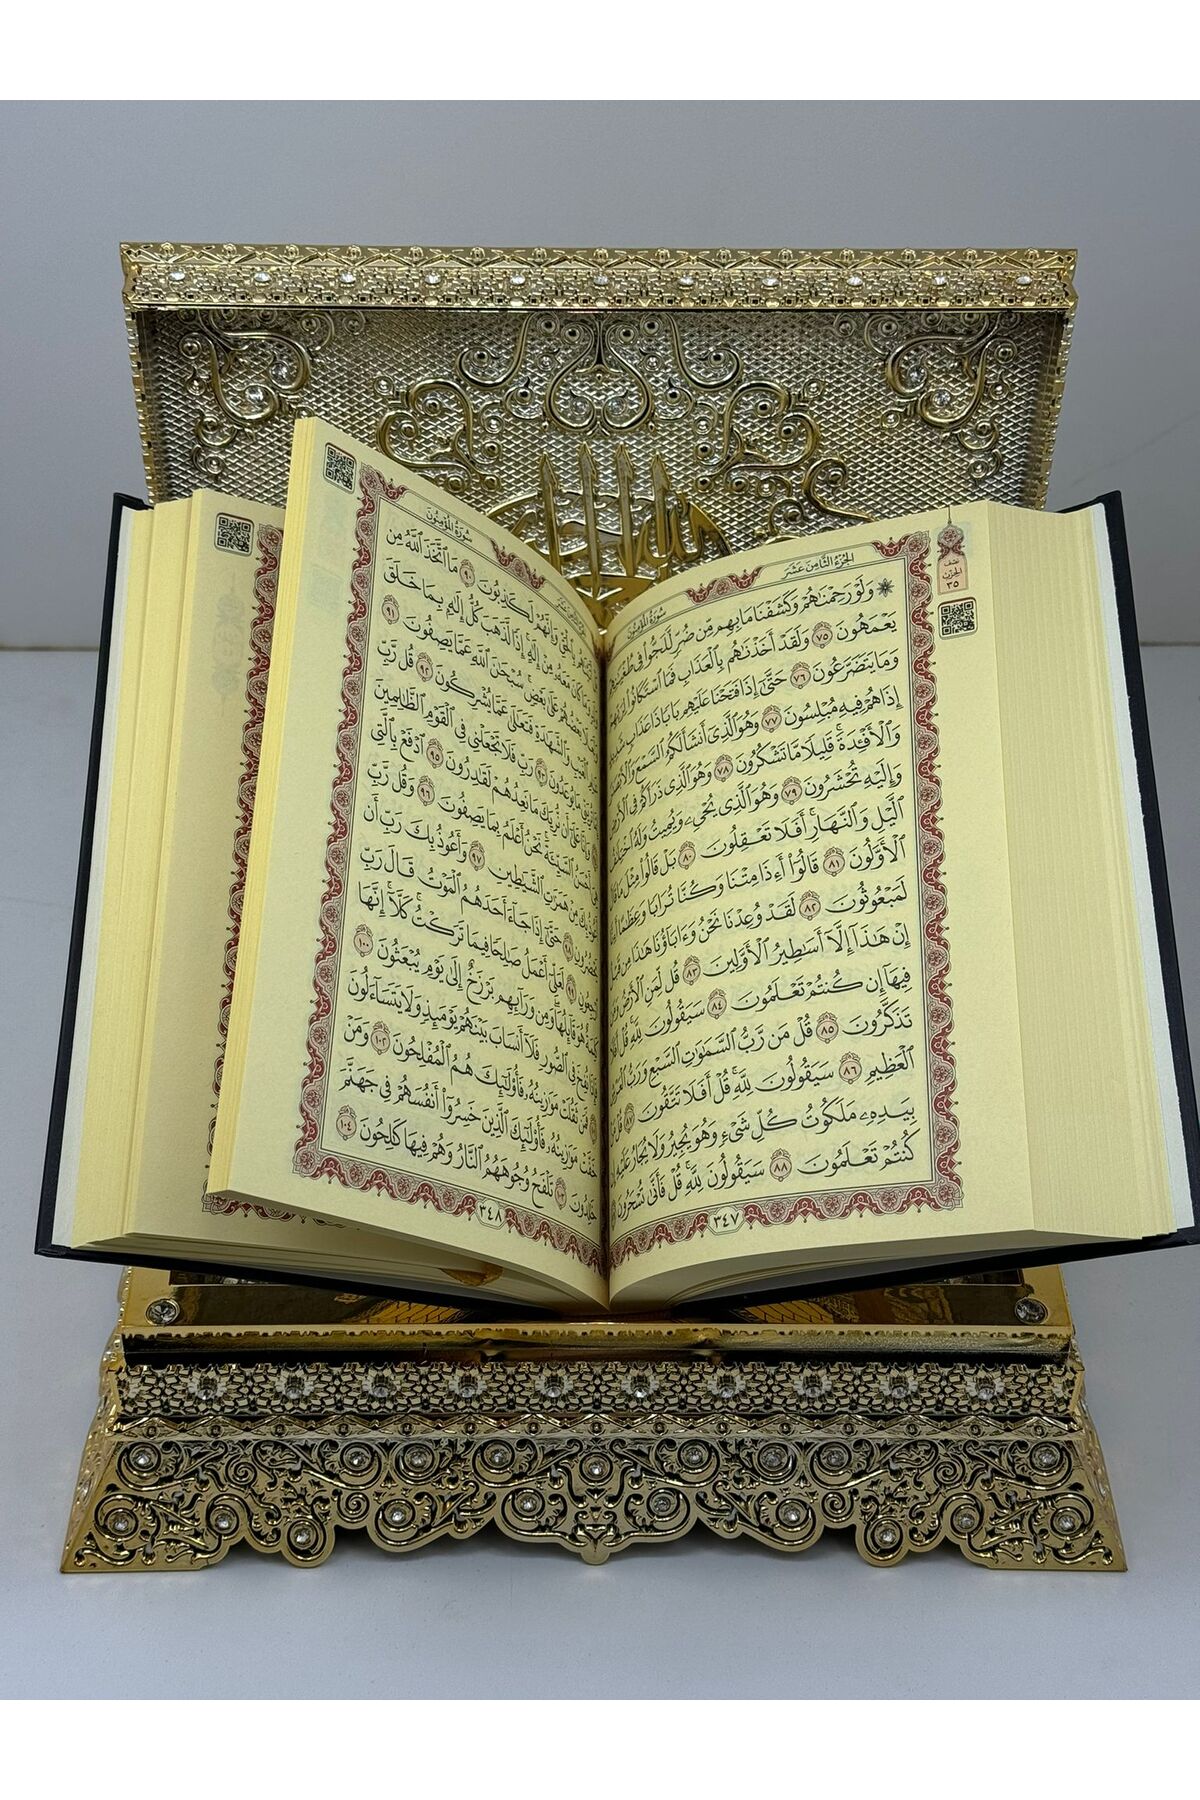 الجزء الثامن عشر
سورة المؤمنون
نصف
الحزب
٣٥
۞ وَلَوْ رَحِمْنَٰهُمْ وَكَشَفْنَا مَا بِهِم مِّن ضُرٍّ لَّلَجُّوا۟ فِى طُغْيَٰنِهِمْ
يَعْمَهُونَ ٧٥ وَلَقَدْ أَخَذْنَٰهُم بِٱلْعَذَابِ فَمَا ٱسْتَكَانُوا۟ لِرَبِّهِمْ
وَمَا يَتَضَرَّعُونَ ٧٦ حَتَّىٰٓ إِذَا فَتَحْنَا عَلَيْهِم بَابًا ذَا عَذَابٍ
إِذَا هُمْ فِيهِ مُبْلِسُونَ ٧٧ وَهُوَ ٱلَّذِىٓ أَنشَأَ لَكُمُ ٱلسَّمْعَ وَٱلْأَبْصَٰرَ
وَٱلْأَفْـِٔدَةَ ۚ قَلِيلًا مَّا تَشْكُرُونَ ٧٨ وَهُوَ ٱلَّذِى ذَرَأَكُمْ فِى ٱلْأَرْضِ
وَإِلَيْهِ تُحْشَرُونَ ٧٩ وَهُوَ ٱلَّذِى يُحْىِۦ وَيُمِيتُ وَلَهُ ٱخْتِلَٰفُ
ٱلَّيْلِ وَٱلنَّهَارِ ۚ أَفَلَا تَعْقِلُونَ ٨٠ بَلْ قَالُوا۟ مِثْلَ مَا قَالَ
ٱلْأَوَّلُونَ ٨١ قَالُوٓا۟ أَءِذَا مِتْنَا وَكُنَّا تُرَابًا وَعِظَٰمًا أَءِنَّا
لَمَبْعُوثُونَ ٨٢ لَقَدْ وُعِدْنَا نَحْنُ وَءَابَآؤُنَا هَٰذَا مِن قَبْلُ
إِنْ هَٰذَآ إِلَّآ أَسَٰطِيرُ ٱلْأَوَّلِينَ ٨٣ قُل لِّمَنِ ٱلْأَرْضُ وَمَن
فِيهَآ إِن كُنتُمْ تَعْلَمُونَ ٨٤ سَيَقُولُونَ لِلَّهِ ۚ قُلْ أَفَلَا
تَذَكَّرُونَ ٨٥ قُلْ مَن رَّبُّ ٱلسَّمَٰوَٰتِ ٱلسَّبْعِ وَرَبُّ ٱلْعَرْشِ
ٱلْعَظِيمِ ٨٦ سَيَقُولُونَ لِلَّهِ ۚ قُلْ أَفَلَا تَتَّقُونَ ٨٧ قُلْ مَنۢ
بِيَدِهِۦ مَلَكُوتُ كُلِّ شَىْءٍ وَهُوَ يُجِيرُ وَلَا يُجَارُ عَلَيْهِ إِن
كُنتُمْ تَعْلَمُونَ ٨٨ سَيَقُولُونَ لِلَّهِ ۚ قُلْ فَأَنَّىٰ تُسْحَرُونَ
٣٤٧
سورة المؤمنون
بِٱلْحَقِّ وَإِنَّهُمْ لَكَٰذِبُونَ ٩٠ مَا ٱتَّخَذَ ٱللَّهُ مِن
وَمَا كَانَ مَعَهُۥ مِنْ إِلَٰهٍ ۚ إِذًا لَّذَهَبَ كُلُّ إِلَٰهٍۭ بِمَا خَلَقَ
بَعْضُهُمْ عَلَىٰ بَعْضٍ ۚ سُبْحَٰنَ ٱللَّهِ عَمَّا يَصِفُونَ ٩١
ٱلْغَيْبِ وَٱلشَّهَٰدَةِ فَتَعَٰلَىٰ عَمَّا يُشْرِكُونَ ٩٢ قُل رَّبِّ
مَا يُوعَدُونَ ٩٣ رَبِّ فَلَا تَجْعَلْنِى فِى ٱلْقَوْمِ ٱلظَّٰلِمِينَ
وَإِنَّا عَلَىٰٓ أَن نُّرِيَكَ مَا نَعِدُهُمْ لَقَٰدِرُونَ ٩٥ ٱدْفَعْ بِٱلَّتِى
أَحْسَنُ ٱلسَّيِّئَةَ ۚ نَحْنُ أَعْلَمُ بِمَا يَصِفُونَ ٩٦ وَقُل رَّبِّ
أَعُوذُ بِكَ مِنْ هَمَزَٰتِ ٱلشَّيَٰطِينِ ٩٧ وَأَعُوذُ بِكَ رَبِّ أَن
يَحْضُرُونِ ٩٨ حَتَّىٰٓ إِذَا جَآءَ أَحَدَهُمُ ٱلْمَوْتُ قَالَ رَبِّ
ٱرْجِعُونِ ٩٩ لَعَلِّىٓ أَعْمَلُ صَٰلِحًا فِيمَا تَرَكْتُ ۚ كَلَّآ ۚ إِنَّهَا
كَلِمَةٌ هُوَ قَآئِلُهَا ۖ وَمِن وَرَآئِهِم بَرْزَخٌ إِلَىٰ يَوْمِ يُبْعَثُونَ ١٠٠
فَإِذَا نُفِخَ فِى ٱلصُّورِ فَلَآ أَنسَابَ بَيْنَهُمْ يَوْمَئِذٍ وَلَا يَتَسَآءَلُونَ
فَمَن ثَقُلَتْ مَوَٰزِينُهُۥ فَأُو۟لَٰٓئِكَ هُمُ ٱلْمُفْلِحُونَ ١٠٢ وَمَنْ
خَفَّتْ مَوَٰزِينُهُۥ فَأُو۟لَٰٓئِكَ ٱلَّذِينَ خَسِرُوٓا۟ أَنفُسَهُمْ فِى جَهَنَّمَ
خَٰلِدُونَ ١٠٣ تَلْفَحُ وُجُوهَهُمُ ٱلنَّارُ وَهُمْ فِيهَا كَٰلِحُونَ ١٠٤
٣٤٨